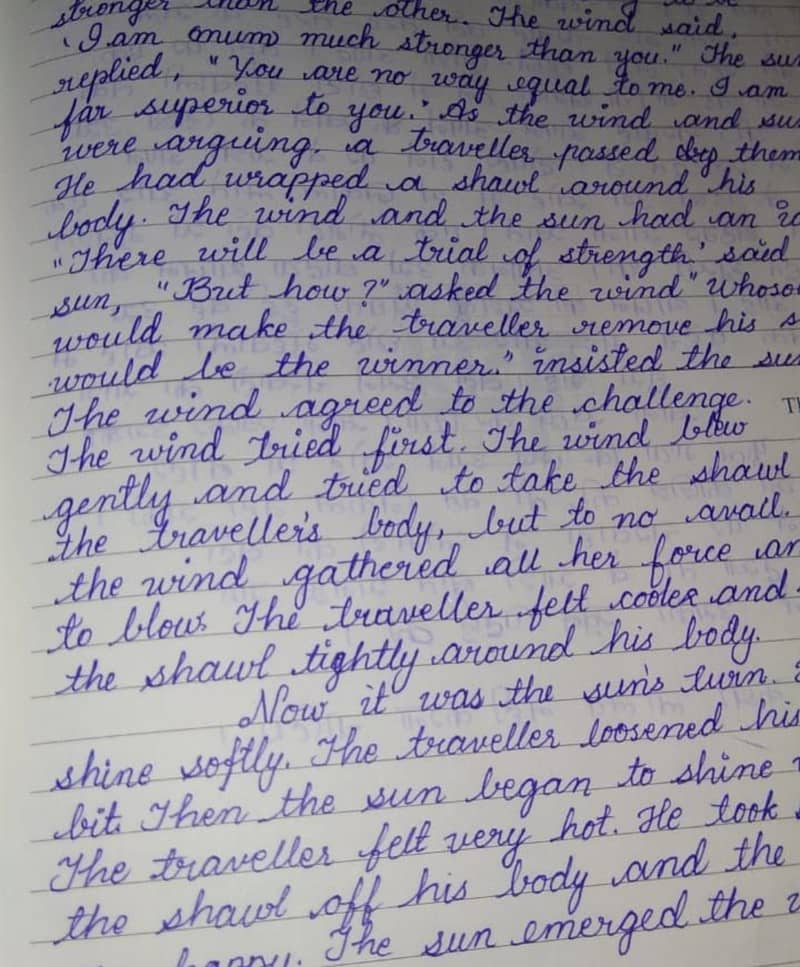 stronger than the other. The wind said,
"I am mum much stronger than you." The sun
replied, "You are no way equal to me. I am
far superior to you." As the wind and su
were arguing, a traveller passed by them
He had wrapped a shawl around his
body. The wind and the sun had an id
"There will be a trial of strength." said
sun, "But how?" asked the wind "Whoso
would make the traveller remove his s
would be the winner." insisted the su
The wind agreed to the challenge.
The wind tried first. The wind blew
gently and tried to take the shawl
the traveller's body, but to no avail.
the wind gathered all her force an
to blow. The traveller felt cooler and
the shawl tightly around his body.
Now it was the sun's turn.
shine softly. The traveller loosened his
bit. Then the sun began to shine
The traveller felt very hot. He took
the shawl off his body and the
happy. The sun emerged the